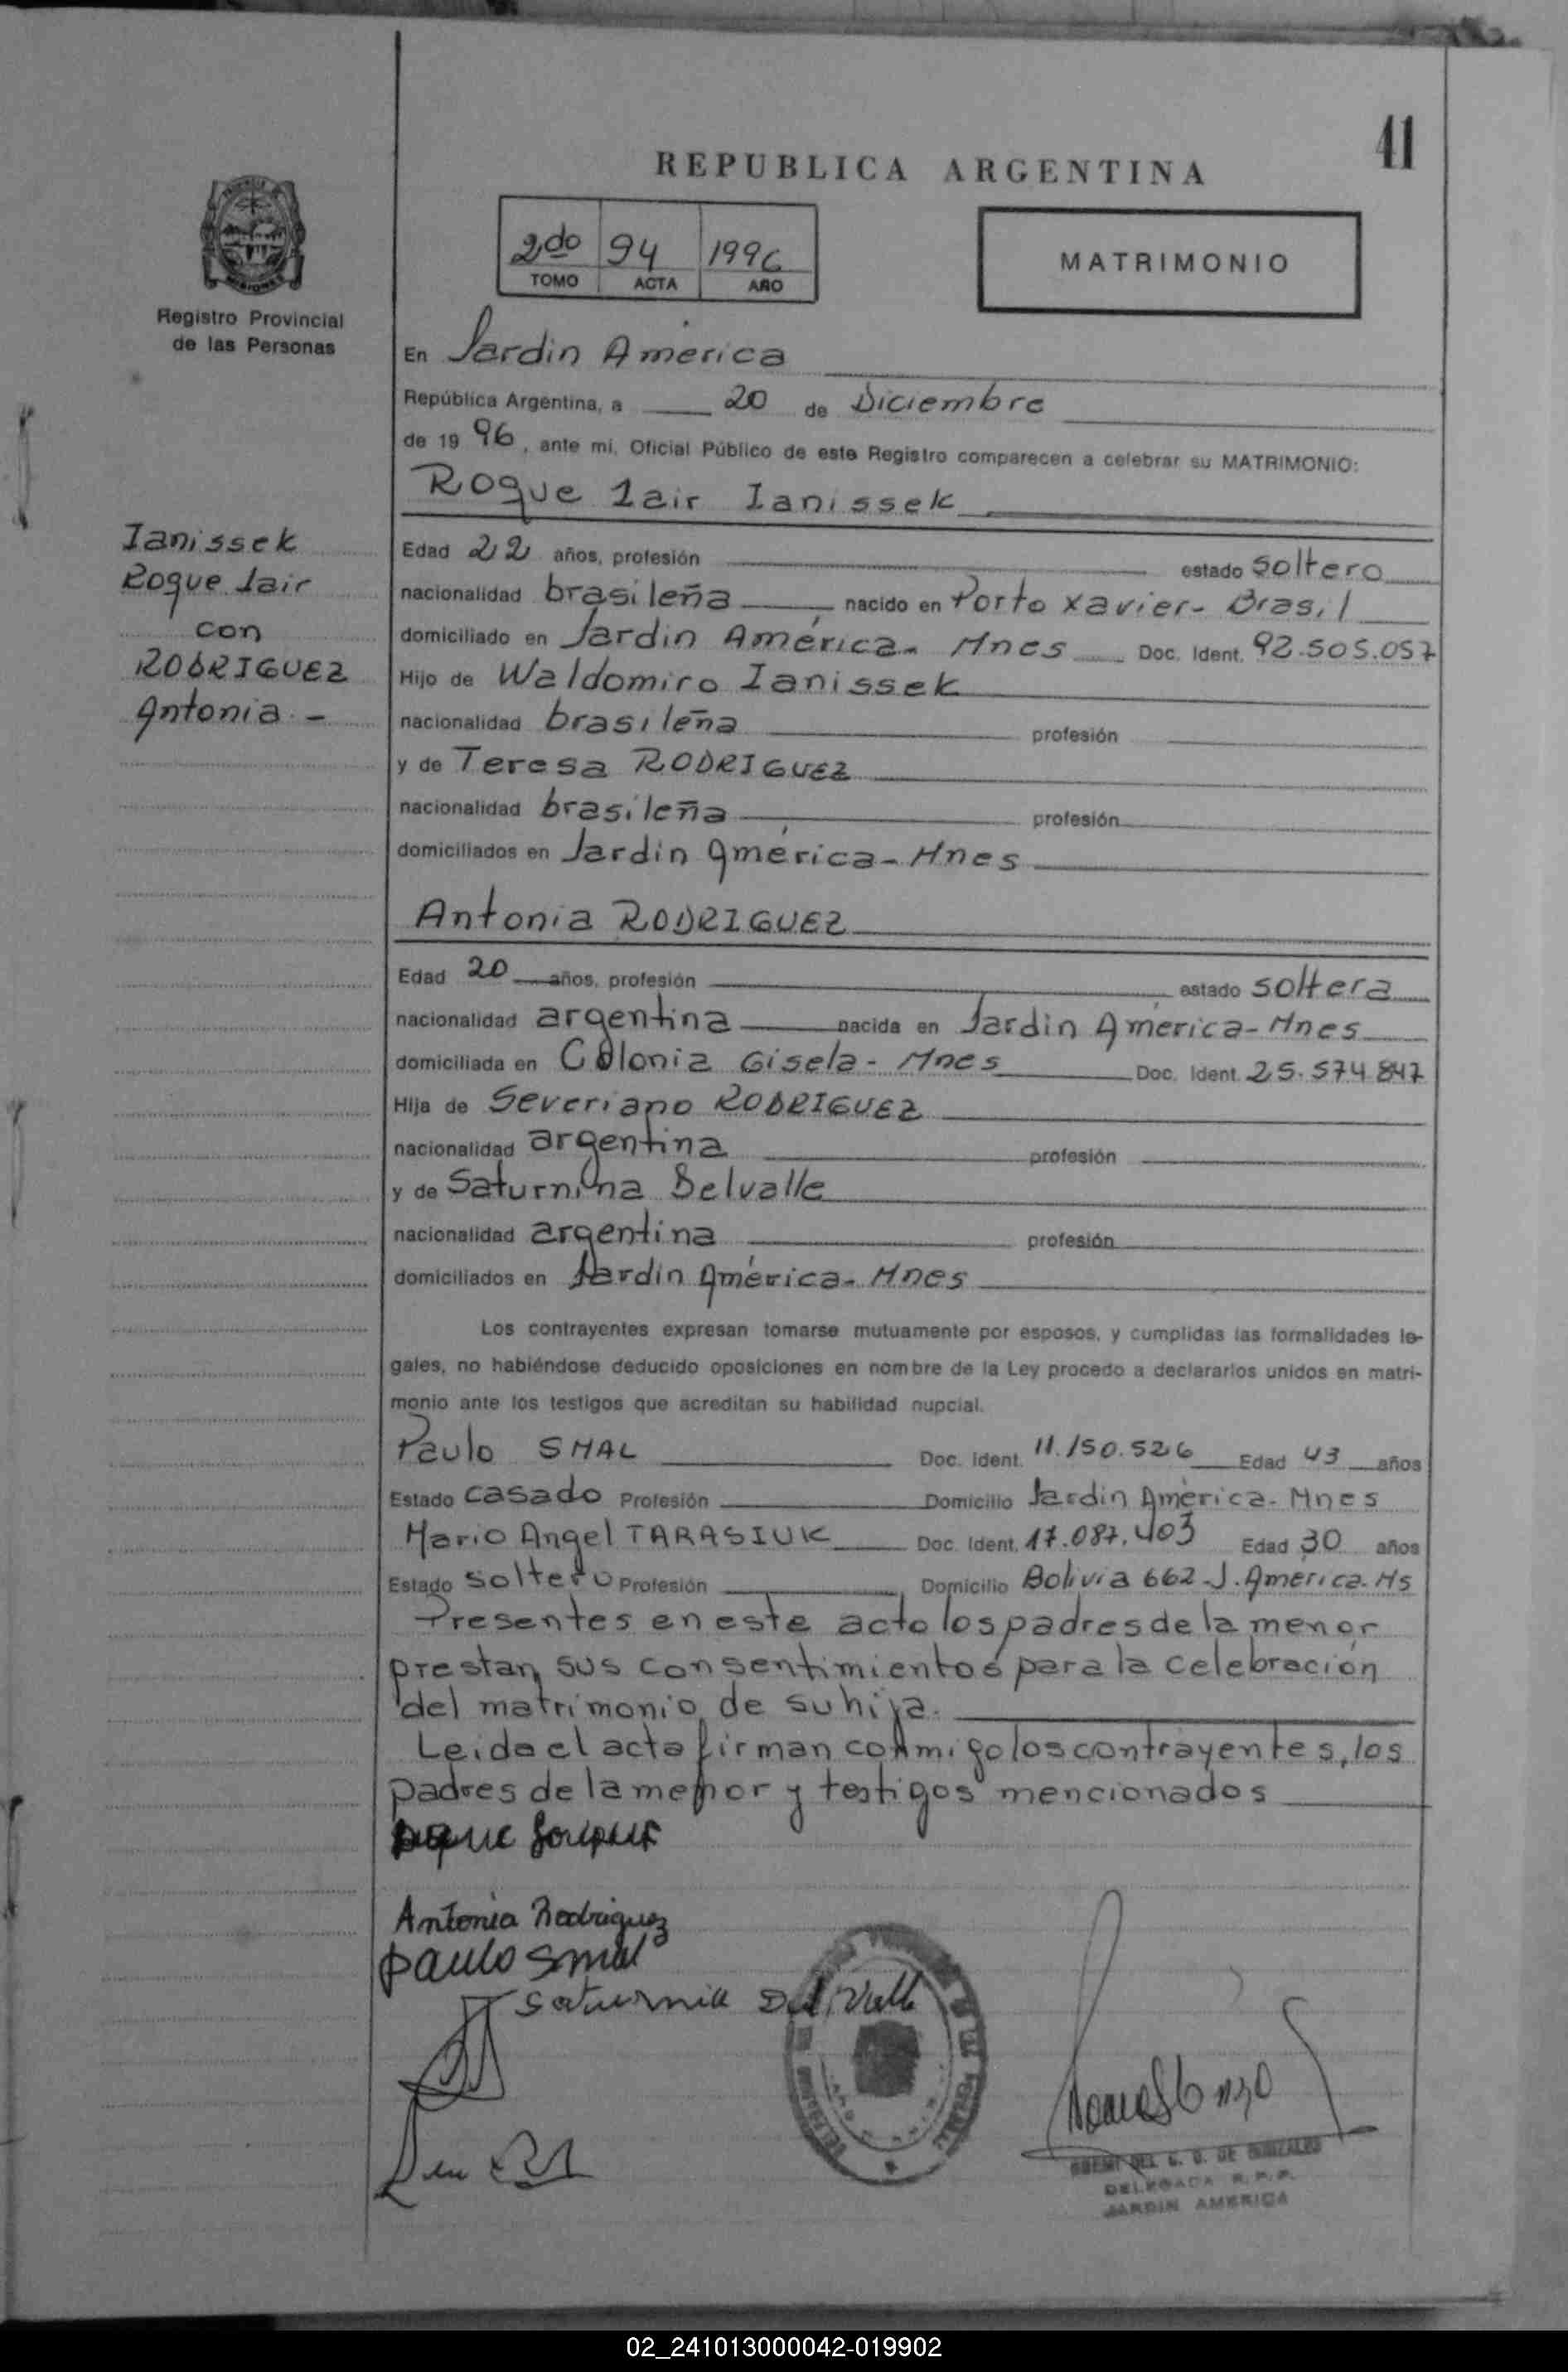 41
REPUBLICA ARGENTINA
2do 94 1996
TOMO ACTA AÑO
MATRIMONIO
MISIONES
Registro Provincial
de las Personas
En Jardin América
República Argentina, a 20 de Diciembre
de 19 96, ante mi, Oficial Público de este Registro comparecen a celebrar su MATRIMONIO:
Roque Iair Ianissek
Ianissek
Roque Iair
con
RODRIGUEZ
Antonia -
Edad 22 años, profesión estado soltero
nacionalidad brasileña nacido en Porto Xavier - Brasil
domiciliado en Jardin América - Mnes Doc. Ident. 92.505.057
Hijo de Waldomiro Ianissek
nacionalidad brasileña profesión
y de Teresa RODRIGUEZ
nacionalidad brasileña profesión
domiciliados en Jardin América - Mnes
Antonia RODRIGUEZ
Edad 20 años, profesión estado soltera
nacionalidad argentina nacida en Jardin América - Mnes
domiciliada en Colonia Gisela - Mnes Doc. Ident. 25.574.847
Hija de Severiano RODRIGUEZ
nacionalidad argentina profesión
y de Saturnina Delvalle
nacionalidad argentina profesión
domiciliados en Jardin América - Mnes
Los contrayentes expresan tomarse mutuamente por esposos, y cumplidas las formalidades le-
gales, no habiéndose deducido oposiciones en nombre de la Ley procedo a declararlos unidos en matri-
monio ante los testigos que acreditan su habilidad nupcial.
Paulo SMAL Doc. Ident. 11.150.526 Edad 43 años
Estado casado Profesión Domicilio Jardin América - Mnes
Mario Angel TARASIUK Doc. Ident. 17.087.403 Edad 30 años
Estado soltero Profesión Domicilio Bolivia 662 - J. America - Ms
Presentes en este acto los padres de la menor
prestan sus consentimientos para la celebración
del matrimonio de su hija.
Leida el acta firman conmigo los contrayentes, los
padres de la menor y testigos mencionados
Antonia Rodriguez
paulo smal
saturnia Del Valle
DELEGADA R. P. P.
JARDIN AMERICA
02_241013000042-019902